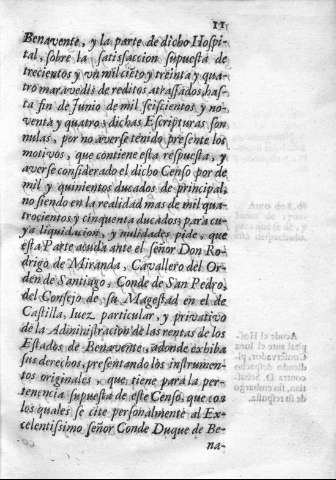 11
Benavente, y la parte de dicho Hospi-
tal, sobre la satisfaccion supuesta de
trecientos y vn mil ciẽto y treinta y qua-
tro maravedis de reditos atrassados, has-
ta fin de Junio de mil seiscientos y no-
venta y quatro: dichas Escripturas son
nulas, por no averse tenido presente los
motivos, que contiene esta respuesta, y
averse considerado el dicho Censo por de
mil y quinientos ducados de principal,
no siendo en la realidad mas de mil qua-
trocientos y cinquenta ducados; para cu-
ya liquidacion, y nulidades pide, que
esta Parte acuda ante el señor Don Ro-
drigo de Miranda, Cavallero del Or-
den de Santiago, Conde de San Pedro,
del Consejo de su Magestad en el de
Castilla, Iuez particular, y privativo
de la Administracion de las rentas de los
Estados de Benavente, adonde exhiba
sus derechos, presentando los instrumen-
tos originales, que tiene para la per-
tenencia supuesta de este Censo, que con
los quales se cite personalmente al Ex-
celentissimo señor Conde Duque de Be-
na-